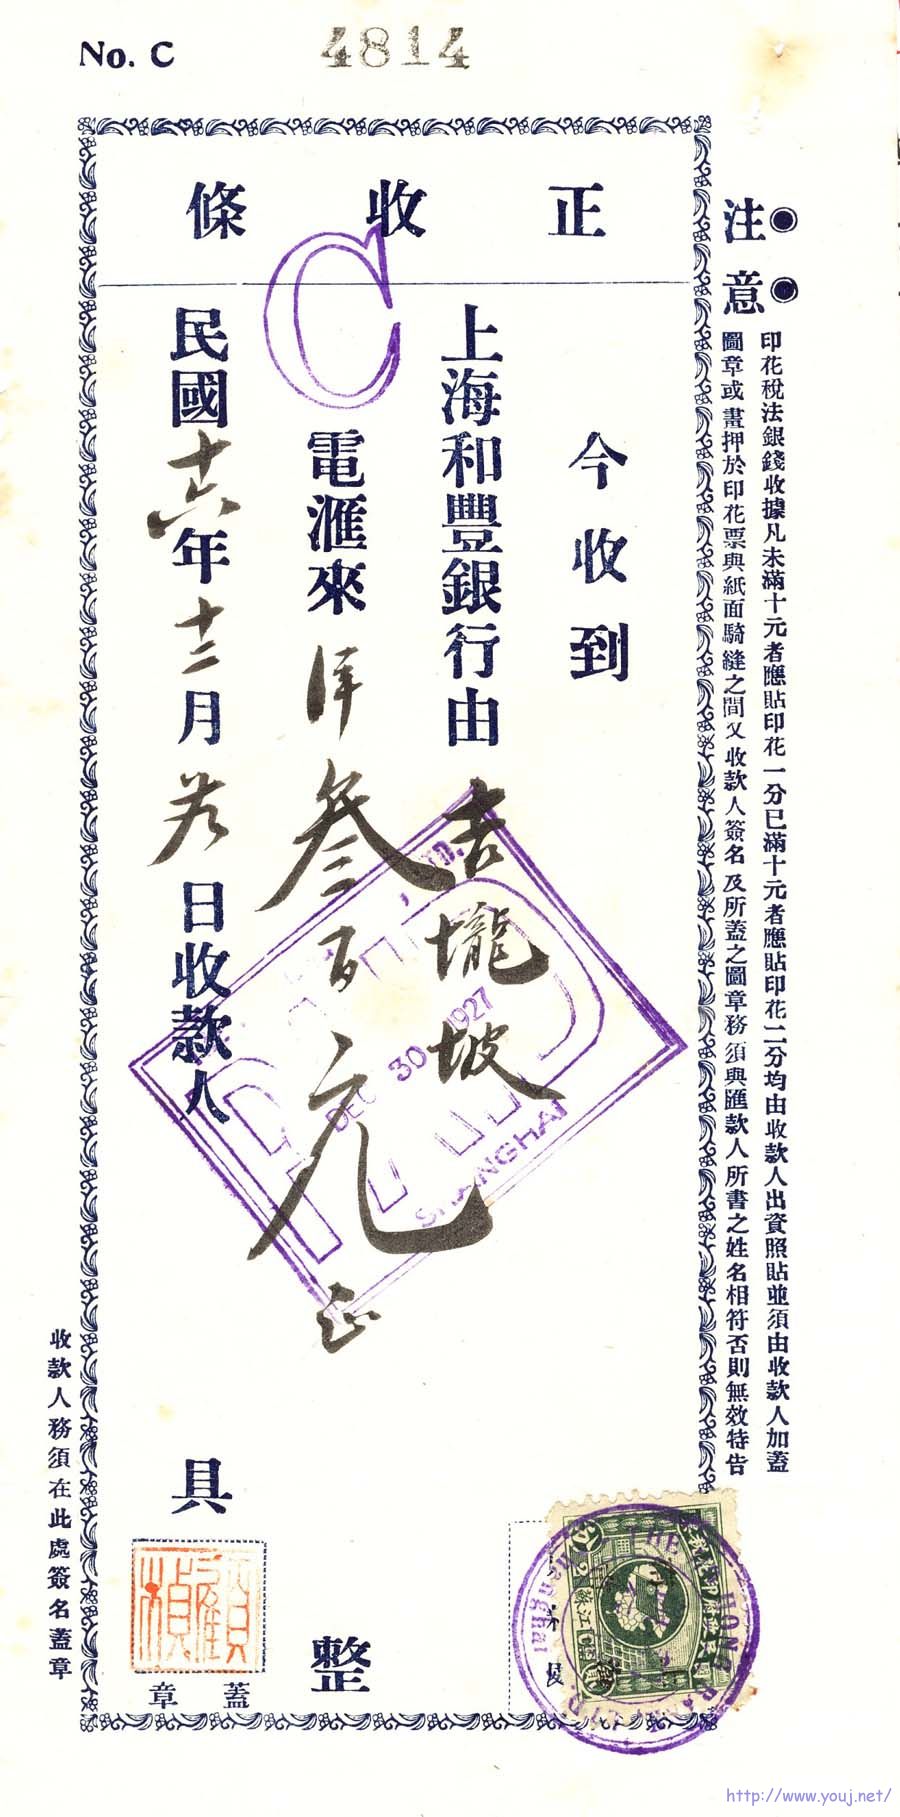 No. C 4814
正收條
C
注意
印花稅法銀錢收據凡未滿十元者應貼印花一分已滿十元者應貼印花二分均由收款人出資照貼並須由收款人加蓋
圖章或畫押於印花票與紙面騎縫之間又收款人簽名及所蓋之圖章務須與匯款人所書之姓名相符否則無效特告
今收到
上海和豐銀行由吉壠坡
電滙來洋叁百元正
整
民國十六年十二月卅日收款人
具
蓋章
收款人務須在此處簽名蓋章
PAID
DEC 30 1927
SHANGHAI
THE HO HONG BANK LTD.
Shanghai
http://www.youj.net/